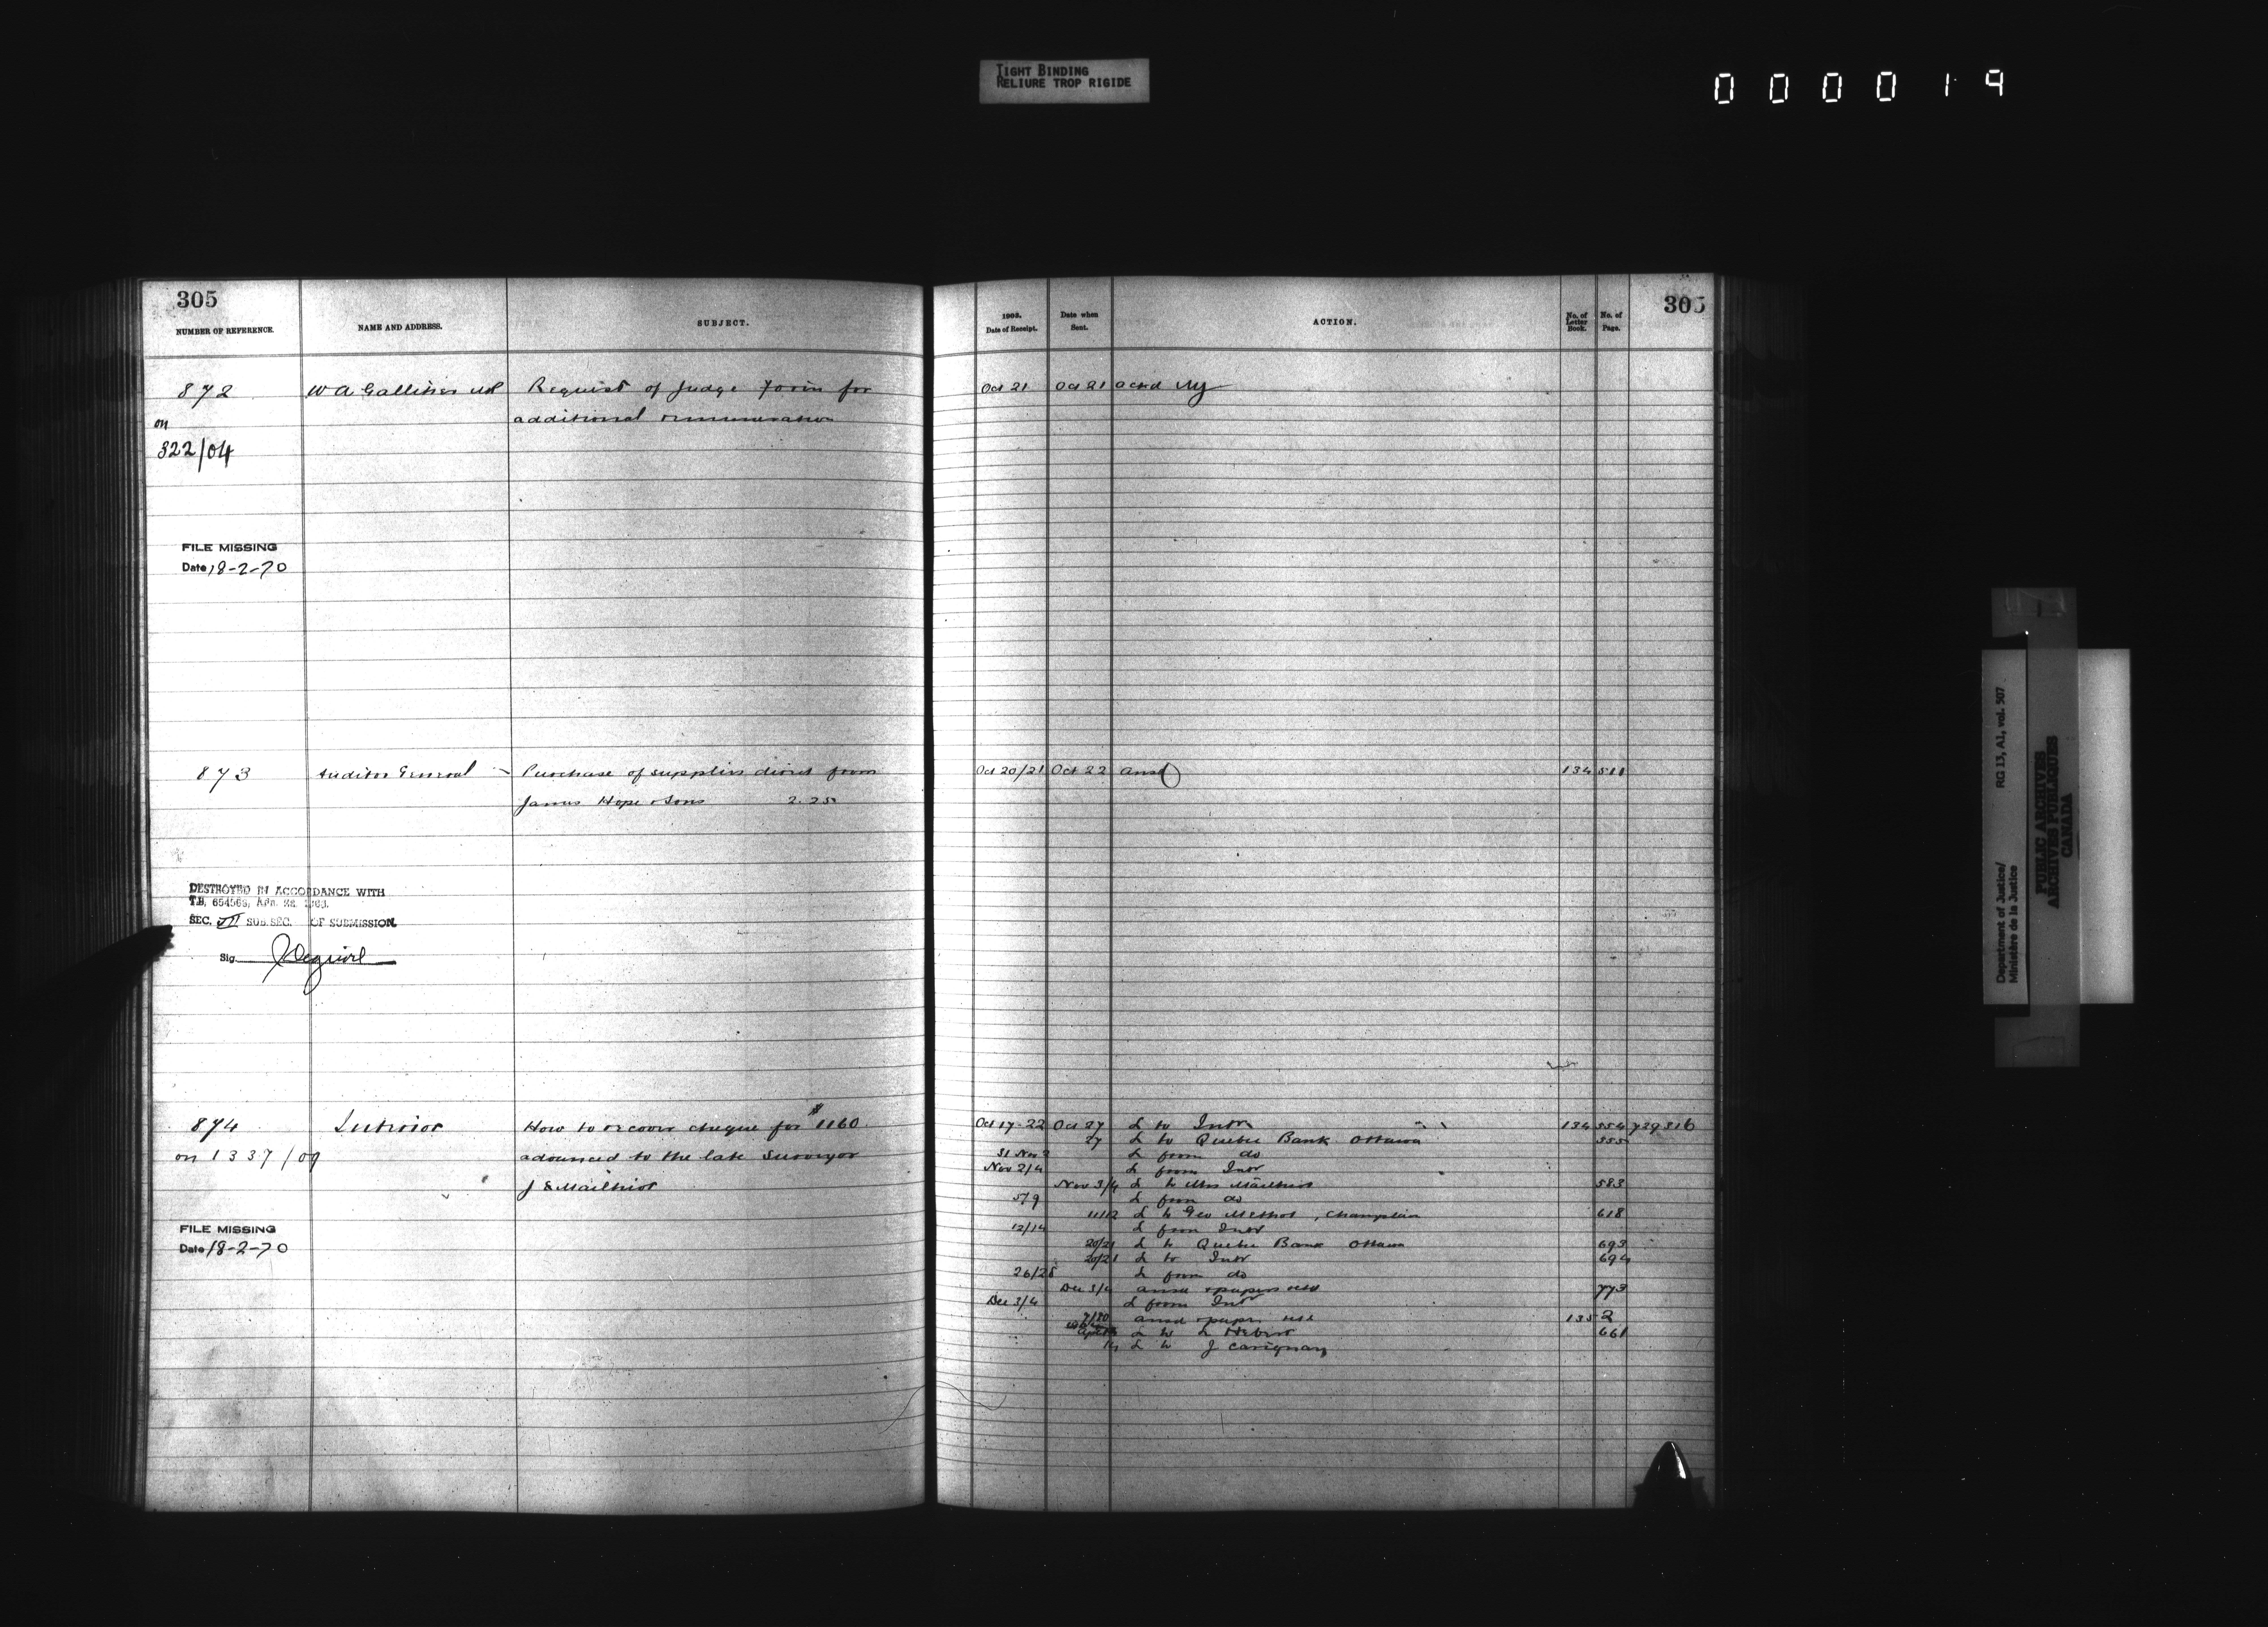 TIGHT BINDING
RELIURE TROP RIGIDE
000019
305
NUMBER OF REFERENCE.
NAME AND ADDRESS.
SUBJECT.
872 W A Galliher MP Request of Judge Forin for
on additional remuneration
322/04
FILE MISSING
Date 18-2-70
873 Auditor General Purchase of supplies direct from
James Hope & Sons 2.25
DESTROYED IN ACCORDANCE WITH
T.B. 654569, Apr. 22
SEC. VII SUB.SEC. OF SUBMISSION.
Sig.
874 Interior How to recover cheque for $1160
on 1337/09 advanced to the late Surveyor
J E Mailhiot
FILE MISSING
Date 18-2-70
305
Date of Receipt.
Date when Sent.
ACTION.
No. of Letter Book.
No. of Page.
Oct 21 Oct 21 ackd
Oct 20/21 Oct 22 ansd 134 511
Oct 17-22 Oct 27 L to Intr 134 554 739 316
27 L to Quebec Bank Ottawa 555
31 Nov 2 L from do
Nov 2/4 L from Intr
Nov 3/4 L to Mrs Mailhiot 583
5/9 L from do
11/12 L to Geo Methot, Champlain 618
12/14 L from Intr
20/21 L to Quebec Bank Ottawa 693
20/21 L to Intr 694
26/28 L from do
Dec 3/4 ansd & papers retd 773
Dec 3/4 L from Intr
ansd & papers retd 135 2
L to L Hebert 661
L to J Carignan
Department of Justice/
Ministère de la Justice
RG 13, A1, vol. 507
PUBLIC ARCHIVES
ARCHIVES PUBLIQUES
CANADA